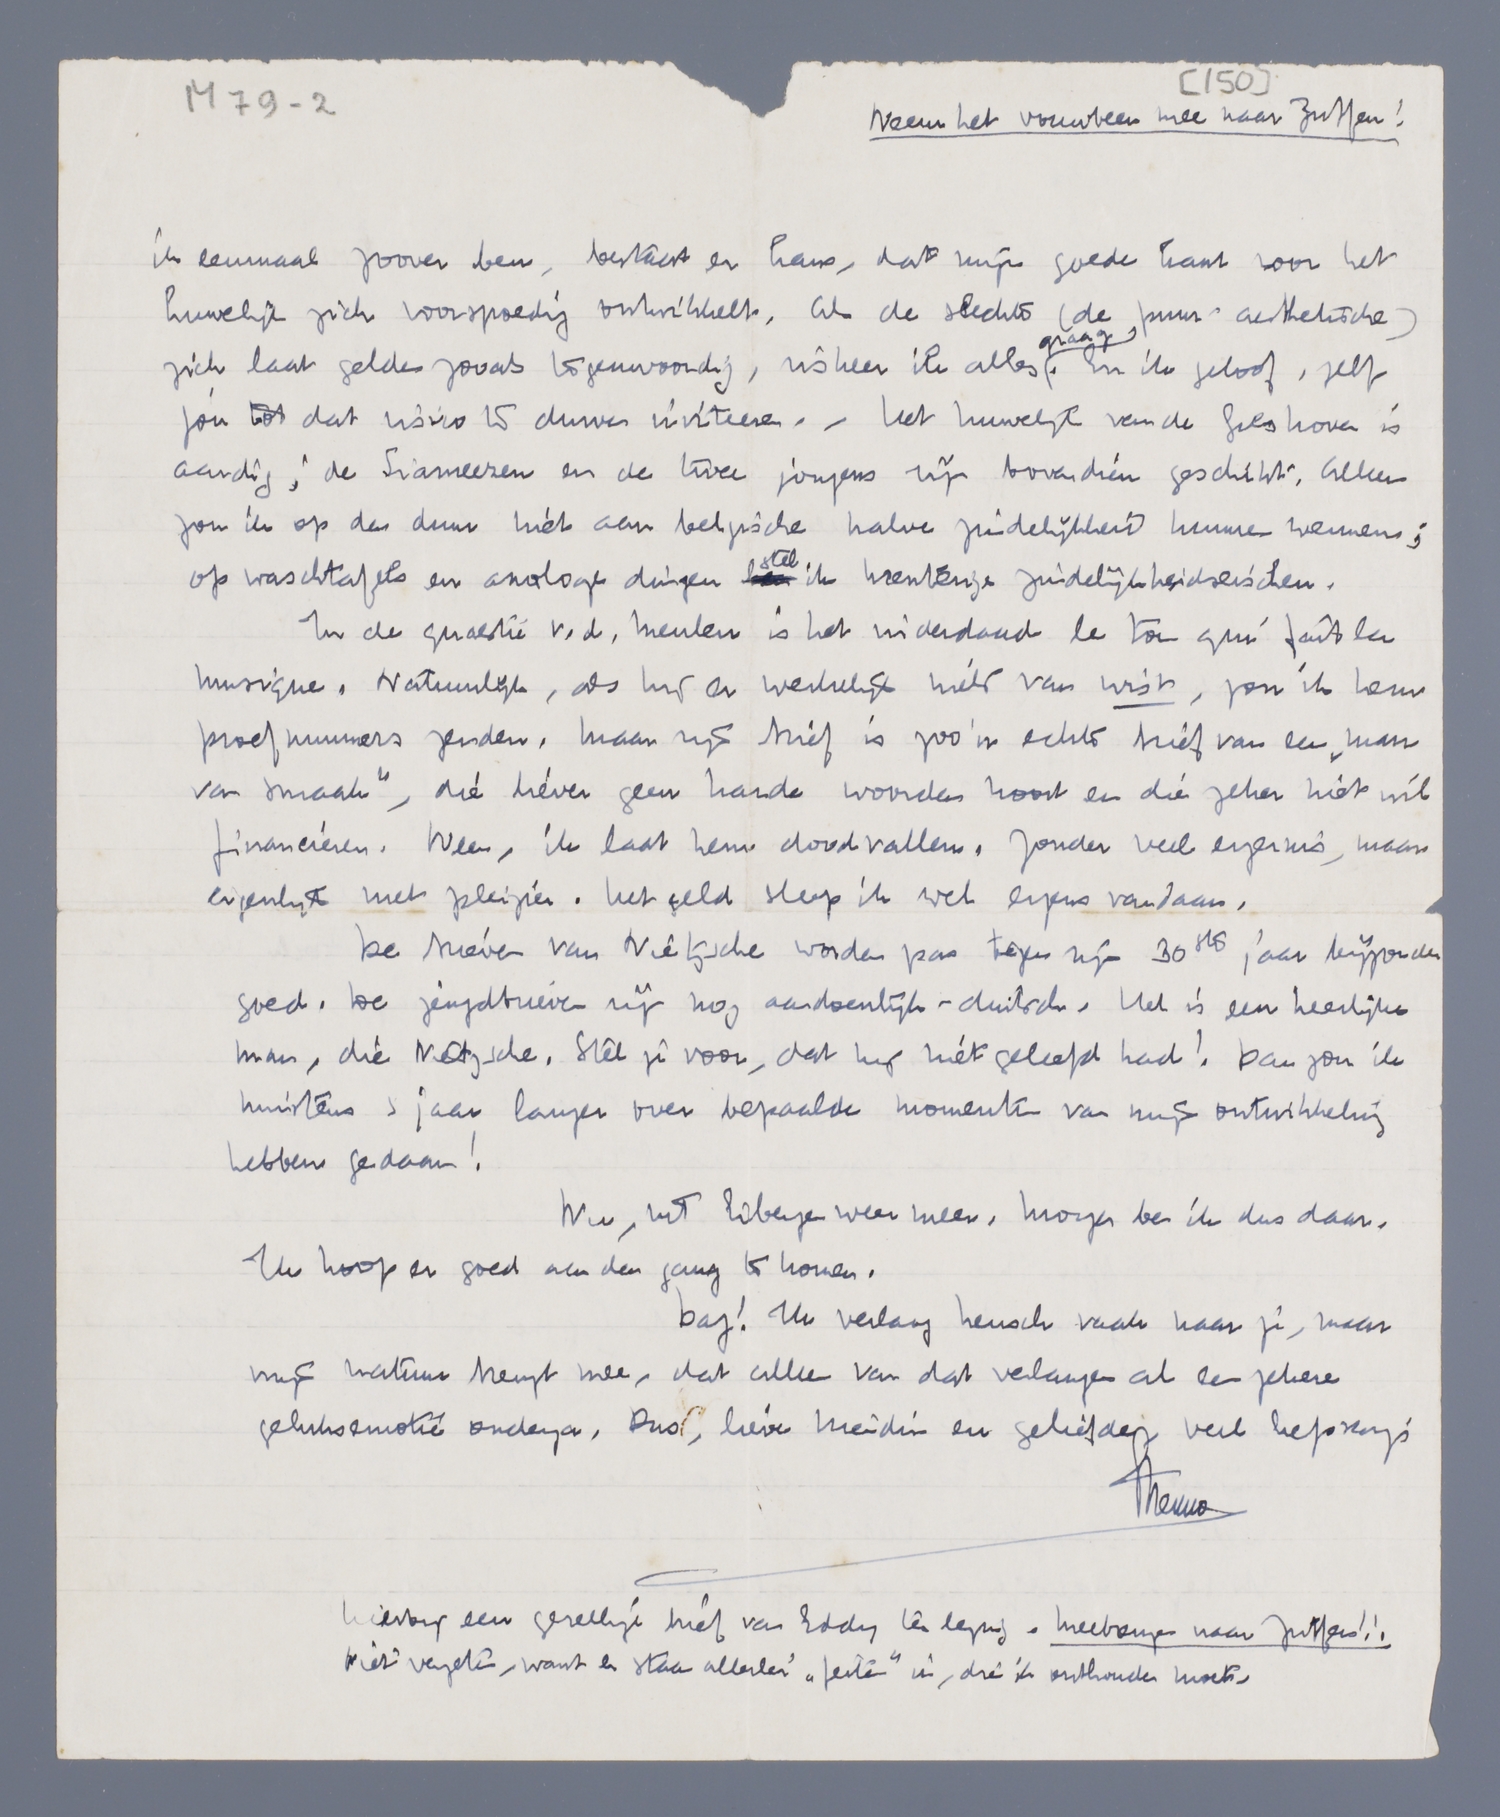 M 79-2
[150]
Neem het vouwbeen mee naar Zutfen!
ik eenmaal zoover ben, bestaat er kans, dat mijn goede kant voor het
huwelijk zich voorspoedig ontwikkelt. Als de slechte (de puur-aesthetische)
zich laat gelden zooals tegenwoordig, riskeer ik alles graag. En ik geloof, zelf
jou tot dat risico te durven inviteeren. - Het huwelijk van de Greshoven is
aardig; de Siameezen en de twee jongens zijn bovendien geschikt. Alleen
zou ik op den duur niet aan belgische halve zindelijkheid kunnen wennen;
op waschtafels en analoge dingen stel ik krenterige zindelijkheidseischen.
In de quaestie v.d. Meulen is het inderdaad le ton qui fait la
musique. Natuurlijk, als hij er werkelijk niets van wist, zou ik hem
proefnummers zenden. Maar zijn brief is zoo'n echte brief van een „man
van smaak", die liever geen harde woorden hoort en die zeker niet wil
financieren. Neen, ik laat hem doodvallen. Zonder veel ergernis, maar
eigenlijk met plezier. Het geld sleep ik wel ergens vandaan.
De brieven van Nietzsche worden pas tegen zijn 30ste jaar bijzonder
goed. De jeugdbrieven zijn nog aandoenlijk-duitsch. Het is een heerlijke
man, die Nietzsche. Stel je voor, dat hij niet geleefd had! Dan zou ik
minstens 5 jaar langer over bepaalde momenten van mijn ontwikkeling
hebben gedaan!
Nu, uit Eibergen weer meer. Morgen ben ik dus daar.
Ik hoop er goed aan den gang te komen.
Dag! Ik verlang heusch vaak naar je, maar
mijn natuur brengt mee, dat alleen van dat verlangen al een zekere
geluksemotie onderga. Dus, lieve meidin en geliefde, veel liefs van je
Menno
Hierbij een gezellige brief van Eddy ter lezing. Meebrengen naar Zutfen!!
Niet vergeten, want er staan allerlei „feiten" in, die ik onthouden moet.